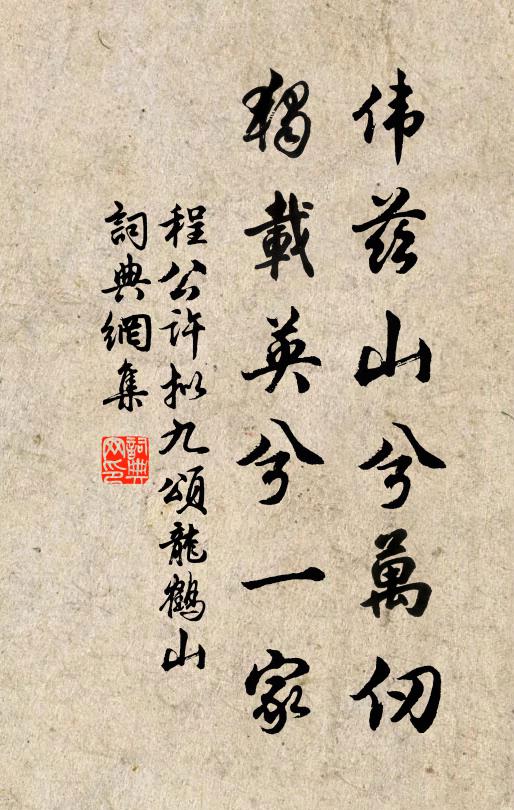 伟茲山兮萬仞
獨載英兮一家
程公许拟九頌龍鶴山
詞典網集
詞典网印